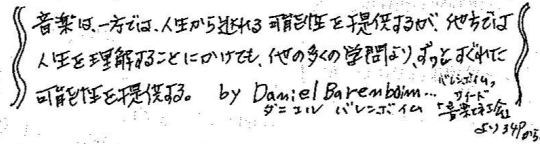 音楽は、一方では、人生から逃れる可能性を提供するが、他方では
人生を理解することにかけても、他の多くの学問より、ずっとすぐれた
可能性を提供する。 by Daniel Barenboim...
ダニエル バレンボイム
バレンボイム,
サイード
「音楽と社会」
より 34Pから